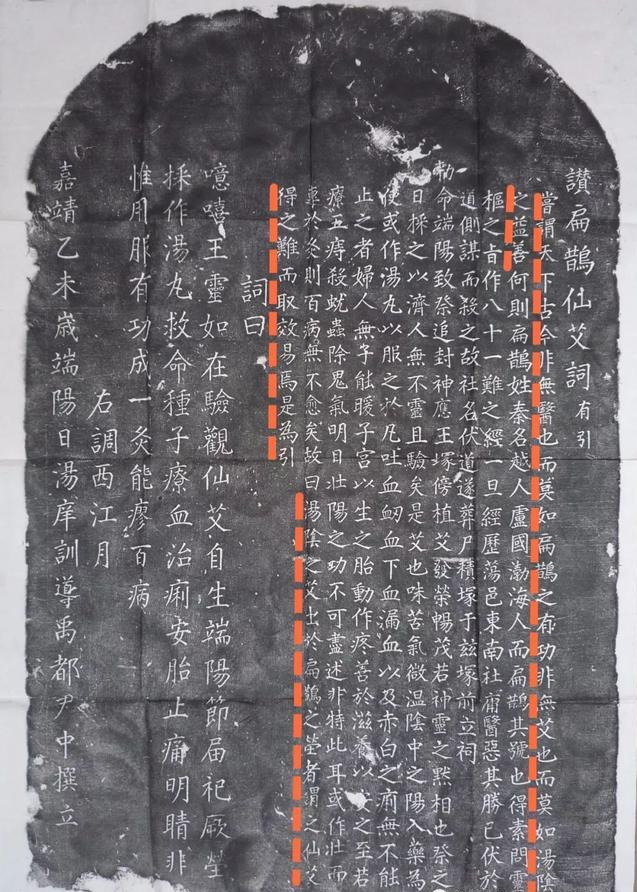 讚扁鵲仙艾詞有引
嘗謂天下古今非無醫也而莫知扁鵲之有功非無艾也而莫如湯陰
之益善何則扁鵲姓秦名越人盧國渤海人而扁鵲其號也得素問靈
樞之旨作八十一難之經一旦經歷蕩邑東南杜甫醫惡其勝己伏於
道側謀而殺之故社名伏道遂葬尸積塚于兹塚前立祠
勅命端陽致祭追封神應王塚傍植艾發榮暢茂若神靈之黙相也祭之
日採之以濟人無不靈且驗矣是艾也味苦氣微温陰中之陽入藥為
使或作湯丸以服之於凡吐血衂血下血漏血以及赤白之痢無不能
止之者婦人無子能暖子宮以生之胎動作疼善於滋養以安之至若
療五痔殺蚘蟲除鬼氣明目壯陽之功不可盡述非特此耳或作壯而
專於灸則百病無不愈矣故曰湯陰之艾出於扁鵲之塋者謂之仙艾
得之難而取效易焉是為引
詞曰
噫嘻王靈如在驗觀仙艾自生端陽節届祀厥塋
採作湯丸救命種子療血治痢安胎止痛明睛非
惟用服有功成一灸能瘳百病
右調西江月
嘉靖乙未歲端陽日湯庠訓導禹都尹中撰立